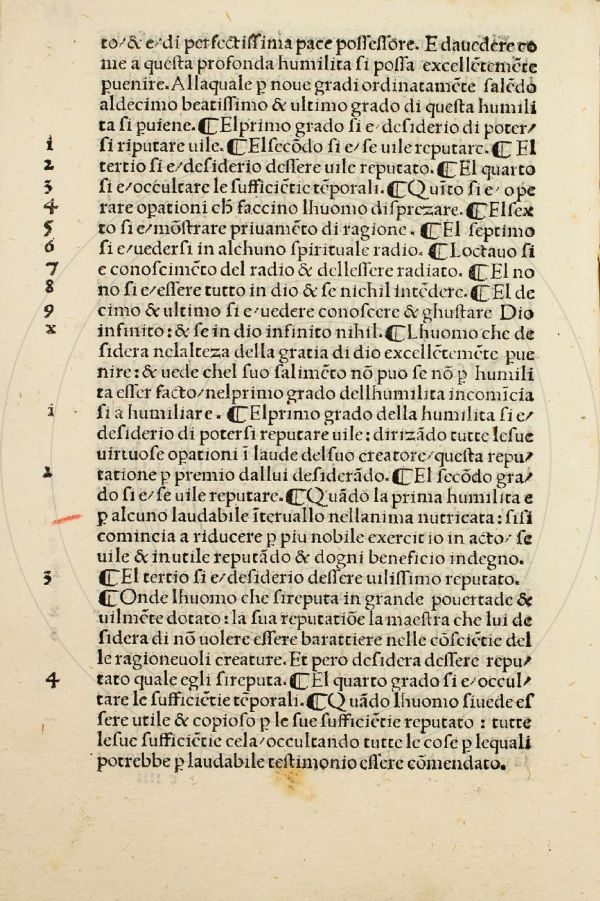 to/ & e/ di perfectissima pace possessore. E dauedere co
me a questa profonda humilita si possa excellētemēte
puenire. Allaquale p noue gradi ordinatamēte salēdo
aldecimo beatissimo & ultimo grado di questa humili
ta si puiene. ⸿El primo grado si e/ desiderio di poter/
1 si riputare uile. ⸿El secōdo si e/ se uile reputare. ⸿ El
2 tertio si e/ desiderio dessere uile reputato. ⸿El quarto
3 si e/ occultare le sufficiētie tēporali. ⸿Quīto si e/ ope
4 rare opationi ch̄ faccino lhuomo disprezare. ⸿El sex
5 to si e/ mōstrare priuamēto di ragione. ⸿El septimo
6 si e/ uedersi in alchuno spirituale radio. ⸿Loctauo si
7 e conoscimēto del radio & dellessere radiato. ⸿El no
8 no si e/ essere tutto in dio & se nichil intēdere. ⸿El de
9 cimo & ultimo si e/ uedere conoscere & ghustare Dio
x infinito: & se in dio infinito nihil. ⸿Lhuomo che de
sidera nelalteza della gratia di dio excellētemēte pue
nire: & uede chel suo salimēto nō puo se nō p humili
ta esser facto/ nelprimo grado dellhumilita incomīcia
i si a humiliare. ⸿El primo grado della humilita si e/
desiderio di potersi reputare uile: dirizādo tutte lesue
uirtuose opationi ī laude delsuo creatore/ questa repu/
2 tatione p premio dallui desiderādo. ⸿El secōdo gra/
do si e/ se uile reputare. ⸿Quādo la prima humilita e
p alcuno laudabile īteruallo nellanima nutricata: sisi
comincia a riducere p piu nobile exercitio in acto/ se
uile & inutile reputādo & dogni beneficio indegno.
3 ⸿El tertio si e/ desiderio dessere uilissimo reputato.
⸿Onde lhuomo che sireputa in grande pouertade &
uilmēte dotato: la sua reputatiōe la maestra che lui de
sidera di nō uolere essere barattiere nelle cōsciētie del
le ragioneuoli creature. Et pero desidera dessere repu/
4 tato quale egli sireputa. ⸿El quarto grado si e/ occul/
tare le sufficiētie tēporali. ⸿Quādo lhuomo siuede es
sere utile & copioso p le sue sufficiētie reputato : tutte
lesue sufficiētie cela/ occultando tutte le cose p lequali
potrebbe p laudabile testimonio essere cōmendato.